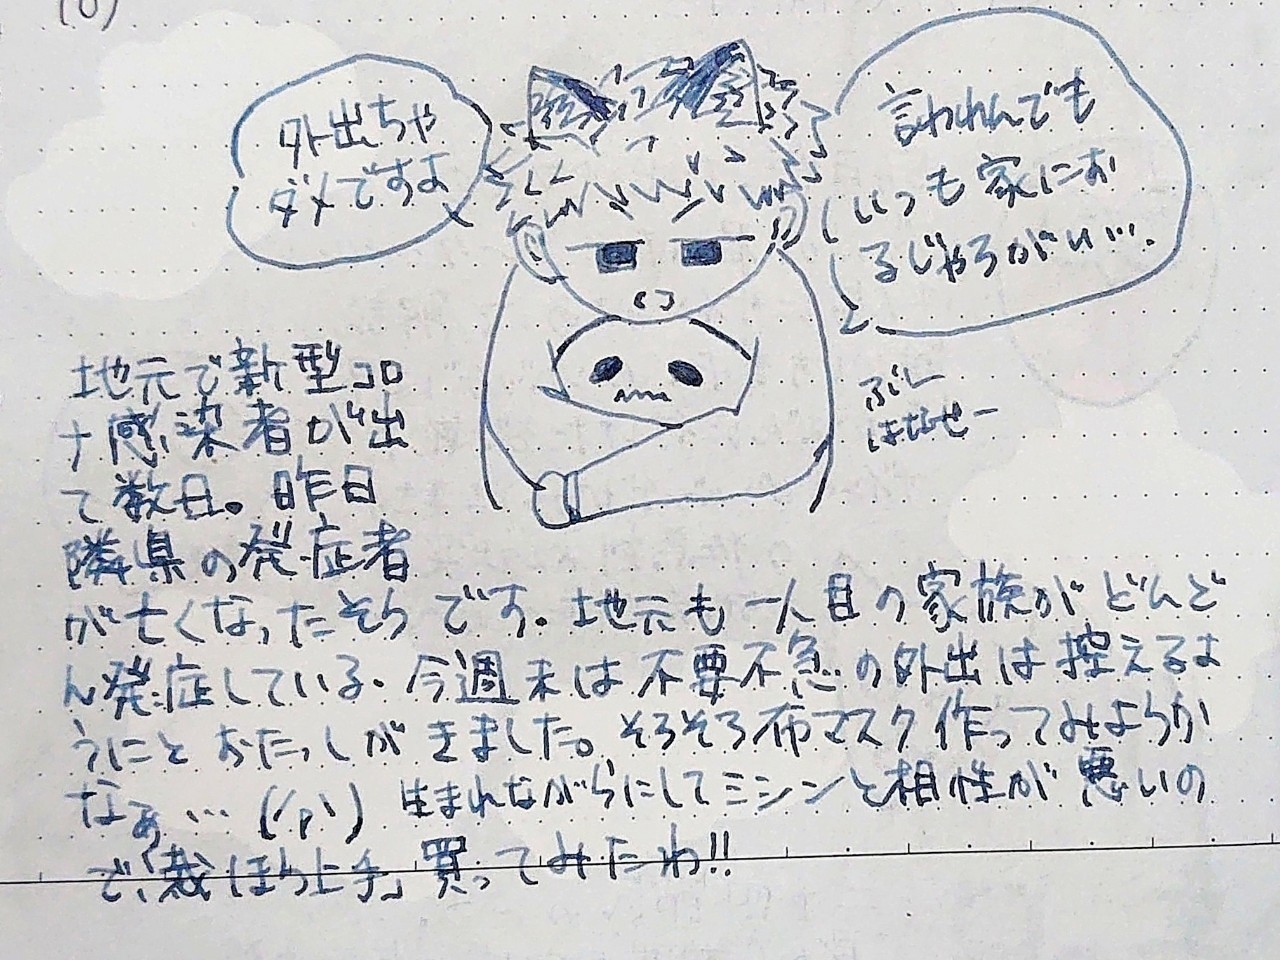 (6)
外出ちゃ
ダメですよ
言われんでも
いつも家にお
るじゃろがい….
ぶしー
はなせー
地元で新型コロ
ナ感染者が出
て数日。昨日
隣県の発症者
が亡くなったそうです。地元も一人目の家族がどんど
ん発症している。今週末は不要不急の外出は控えるよ
うにとおたっしがきました。そろそろ布マスク作ってみようか
なぁ…
生まれながらにしてミシンと相性が悪いの
で、「裁ほう上手」買ってみたわ!!